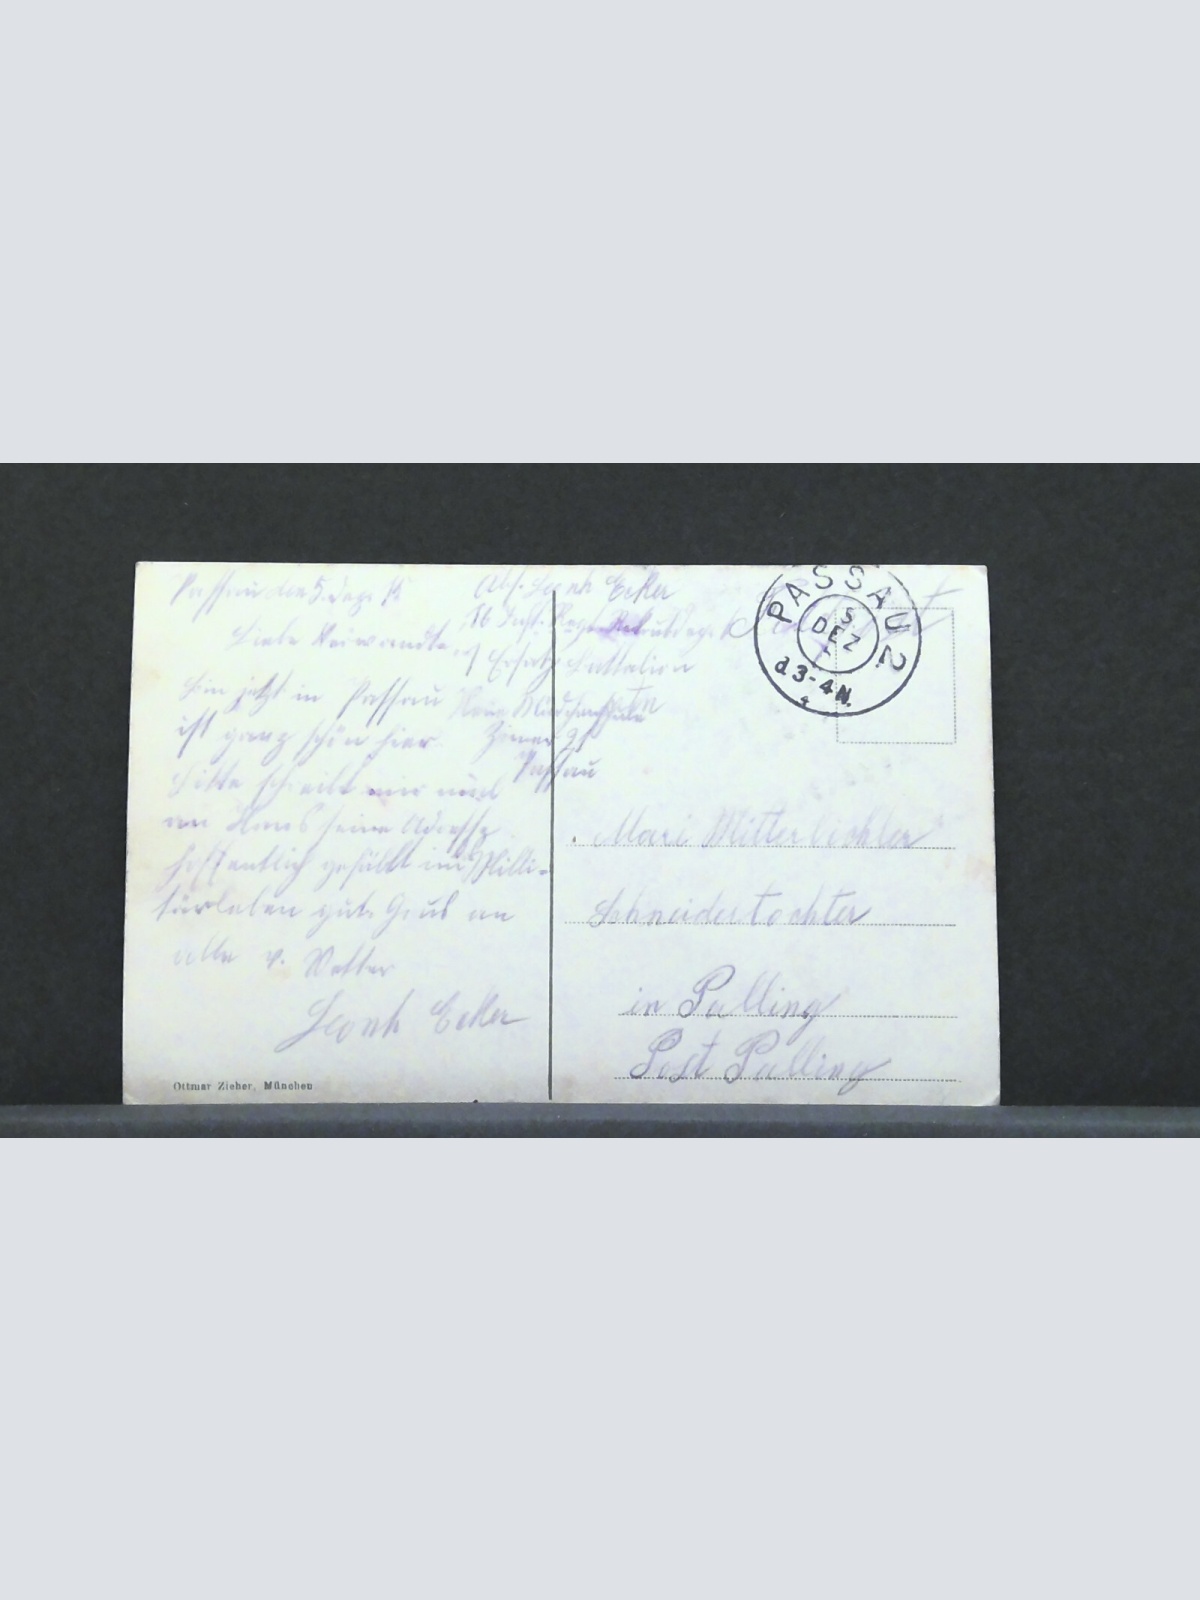 Passau den 5. Dez. 15
Liebe Verwandte
bin jetzt in Passau
ist ganz schön hier.
bitte schreibt mir
an Hans seine Adresse
hoffentlich gefällt im Milli-
tärleben gute Gruß an
alle v. Vetter
Leonh Ecker
Abs. Leonh Ecker
16 Inft. Regt. Rekrutdep.
Ersatz Battalion
Neue Mädchenschule
Zimmer
Passau
PASSAU 2.
5
DEZ
3-4 N.
Mari Mitterbichler
Schneiderstochter
in Palling
Post Palling
Ottmar Zieher, München